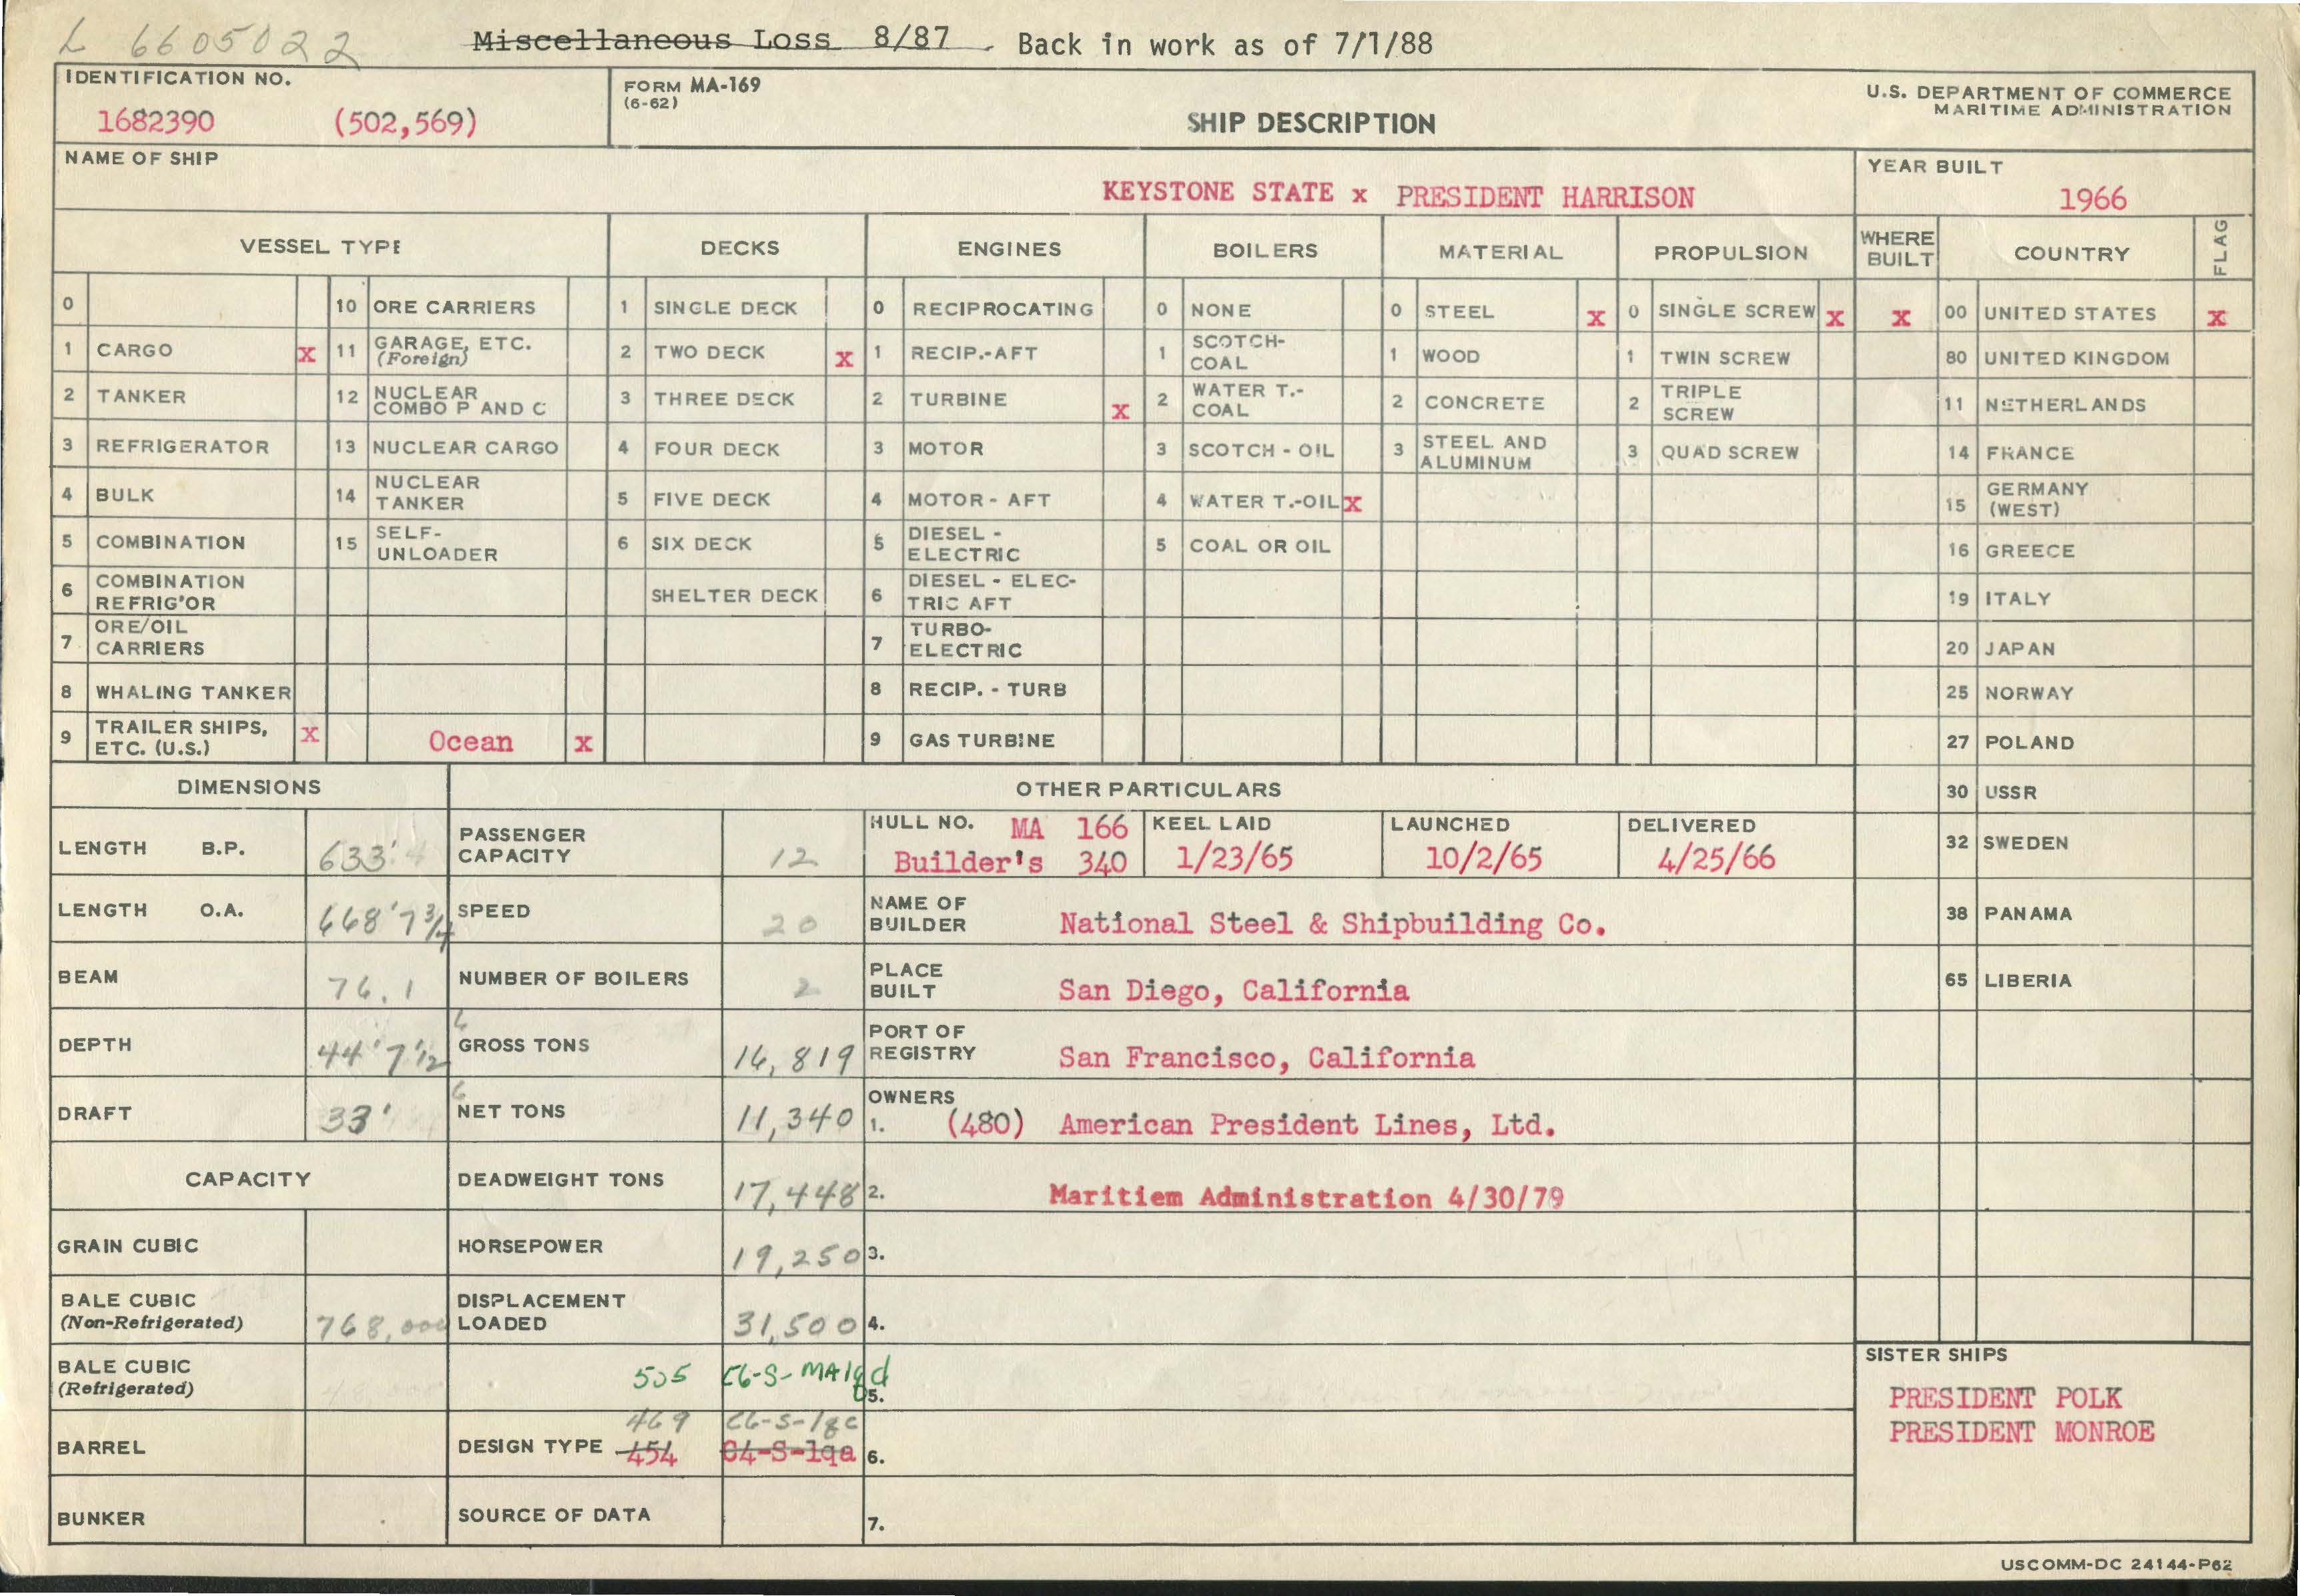 L 6605022
Miscellaneous Loss 8/87 . Back in work as of 7/1/88
IDENTIFICATION NO.
1682390 (502,569)
FORM MA-169
(6-62)
SHIP DESCRIPTION
U.S. DEPARTMENT OF COMMERCE
MARITIME ADMINISTRATION
NAME OF SHIP
KEYSTONE STATE x PRESIDENT HARRISON
YEAR BUILT
1966
VESSEL TYPE DECKS ENGINES BOILERS MATERIAL PROPULSION WHERE BUILT COUNTRY FLAG
0 10 ORE CARRIERS 1 SINGLE DECK 0 RECIPROCATING 0 NONE 0 STEEL x 0 SINGLE SCREW x x 00 UNITED STATES x
1 CARGO x 11 GARAGE, ETC. (Foreign) 2 TWO DECK x 1 RECIP.-AFT 1 SCOTCH-COAL 1 WOOD 1 TWIN SCREW 80 UNITED KINGDOM
2 TANKER 12 NUCLEAR COMBO P AND C 3 THREE DECK 2 TURBINE x 2 WATER T.-COAL 2 CONCRETE 2 TRIPLE SCREW 11 NETHERLANDS
3 REFRIGERATOR 13 NUCLEAR CARGO 4 FOUR DECK 3 MOTOR 3 SCOTCH - OIL 3 STEEL AND ALUMINUM 3 QUAD SCREW 14 FRANCE
4 BULK 14 NUCLEAR TANKER 5 FIVE DECK 4 MOTOR - AFT 4 WATER T.-OIL x 15 GERMANY (WEST)
5 COMBINATION 15 SELF-UNLOADER 6 SIX DECK 5 DIESEL - ELECTRIC 5 COAL OR OIL 16 GREECE
6 COMBINATION REFRIG'OR SHELTER DECK 6 DIESEL - ELECTRIC AFT 19 ITALY
7 ORE/OIL CARRIERS 7 TURBO-ELECTRIC 20 JAPAN
8 WHALING TANKER 8 RECIP. - TURB 25 NORWAY
9 TRAILER SHIPS, ETC. (U.S.) x Ocean x 9 GAS TURBINE 27 POLAND
30 USSR
32 SWEDEN
38 PANAMA
65 LIBERIA
DIMENSIONS
LENGTH B.P. 633'
LENGTH O.A. 668'7 3/4
BEAM 76.1
DEPTH 44'7 1/2
DRAFT 33'
CAPACITY
GRAIN CUBIC
BALE CUBIC
(Non-Refrigerated) 768,000
BALE CUBIC
(Refrigerated)
BARREL
BUNKER
OTHER PARTICULARS
PASSENGER
CAPACITY 12
SPEED 20
NUMBER OF BOILERS 2
GROSS TONS 16,819
NET TONS 11,340
DEADWEIGHT TONS 17,448
HORSEPOWER 19,250
DISPLACEMENT
LOADED 31,500
535 C6-S-MA1qd
469 C6-S-1qc
DESIGN TYPE 454 C4-S-1qa
SOURCE OF DATA
HULL NO. MA 166
Builder's 340
KEEL LAID
1/23/65
LAUNCHED
10/2/65
DELIVERED
4/25/66
NAME OF
BUILDER National Steel & Shipbuilding Co.
PLACE
BUILT San Diego, California
PORT OF
REGISTRY San Francisco, California
OWNERS
1. (480) American President Lines, Ltd.
2. Maritiem Administration 4/30/79
3.
4.
5.
6.
7.
SISTER SHIPS
PRESIDENT POLK
PRESIDENT MONROE
USCOMM-DC 24144-P62